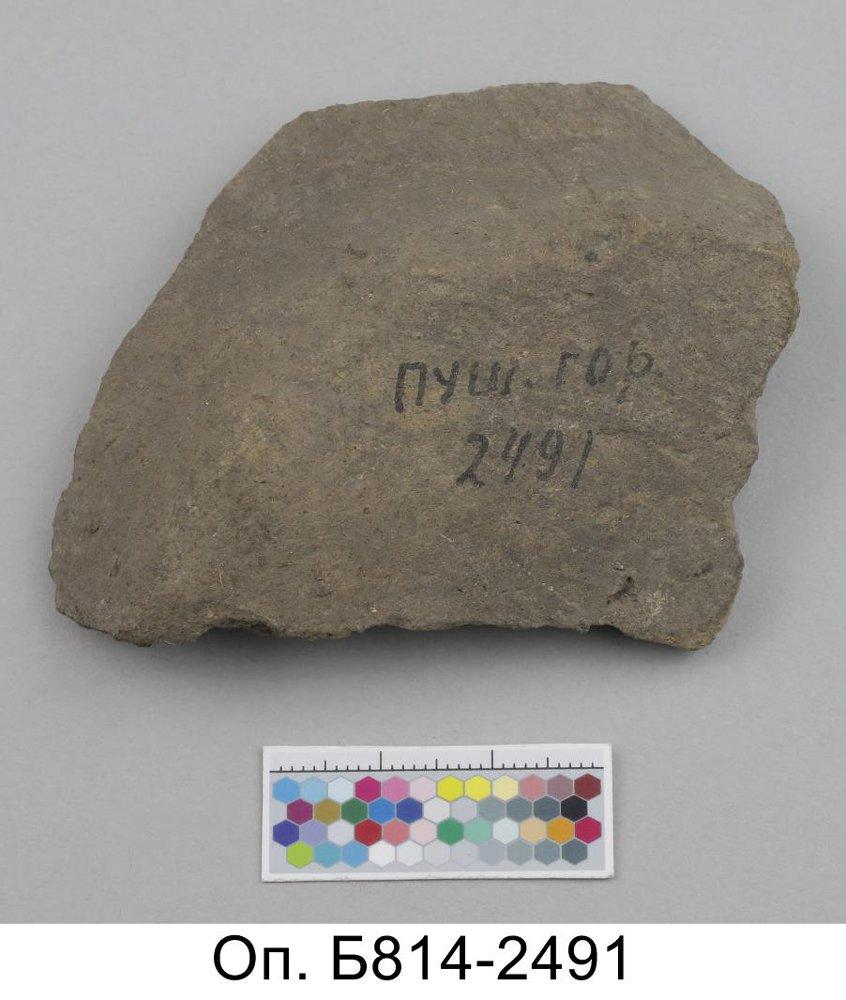 пуш. гор.
2491
Оп. Б814-2491